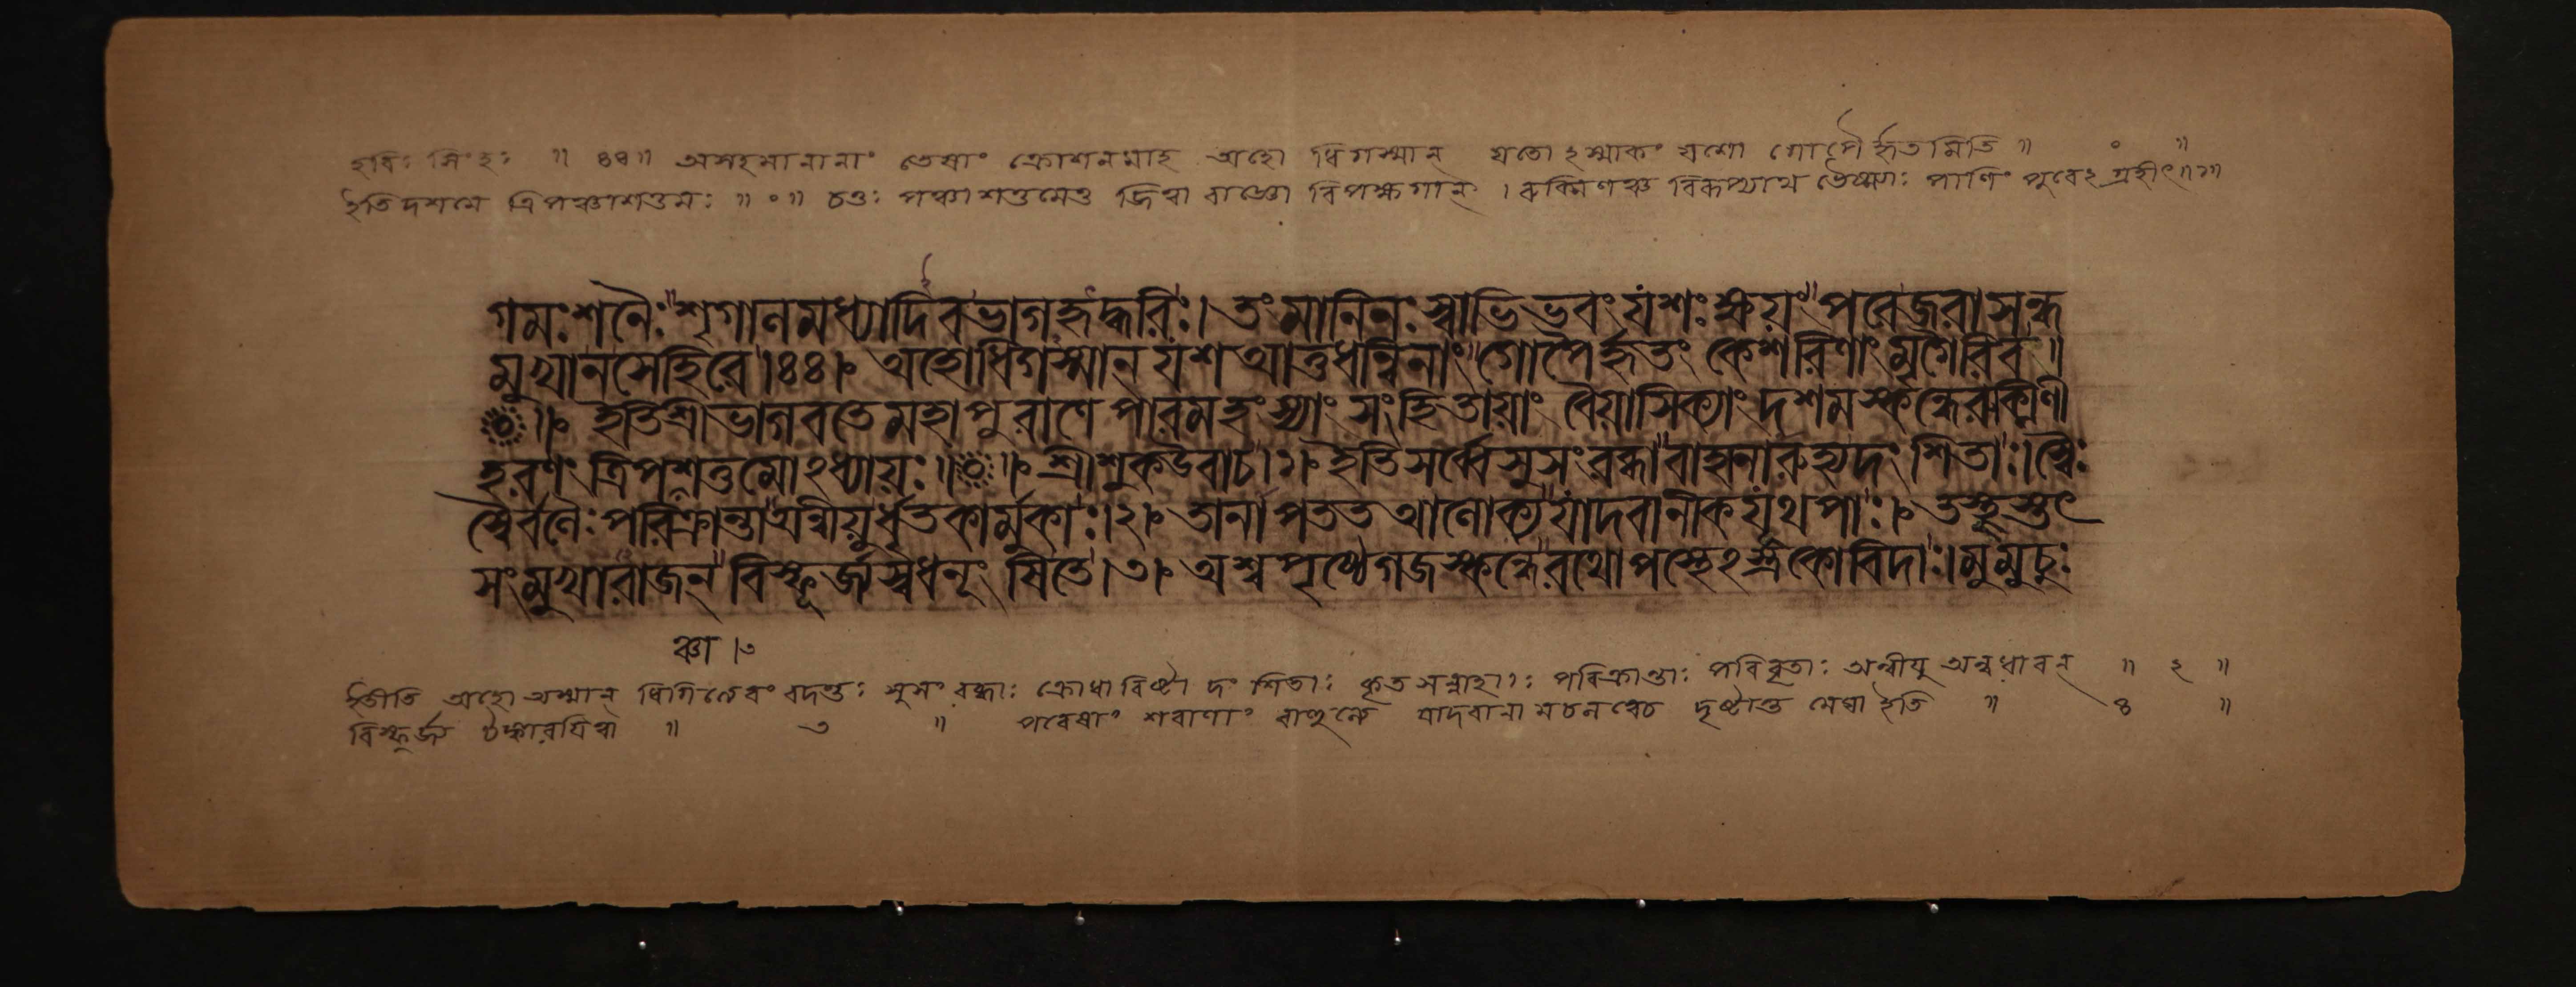 হবিঃ সিংহঃ ॥ ৪৪॥ অসহমানানাং তেষাং ক্রোশনমাহ অহো ধিগস্মান্ যতোঽস্মাকং যশো গোপৈর্হৃতমিতি ॥ ० ॥
ইতি দশমে ত্রিপঞ্চাশত্তমঃ ॥ ० ॥ চতুঃ পঞ্চাশত্তমেতু জিত্বা রাজ্ঞো বিপক্ষগান্ । রুক্মিণঞ্চ পাণিং পুরেঽগ্রহীৎ॥১॥
গমঃ শনৈঃ শৃগালমধ্যাদিব ভাগহৃদ্ধরিঃ। তং মানিনঃ স্বাভিভবং যশঃ ক্ষয়ং পরে জরাসন্ধ
মুখা ন সেহিরে ।৪৪। অহো ধিগস্মান্ যশ আত্তধন্বিনাং গোপৈর্হৃতং কেশরিণাং মৃগৈরিব ॥
॥ ইতি শ্রীভাগবতে মহাপুরাণে পারমহংস্যাং সংহিতায়াং বৈয়াসিক্যাং দশমস্কন্ধে রুক্মিণী
হরণং ত্রিপশত্তমোঽধ্যায়ঃ ॥ ॥ শ্রীশুক উবাচ ।১। ইতি সর্ব্বে সুসংরব্ধা বাহানারুহ্য দংশিতাঃ। স্বৈঃ
স্বৈর্বলৈঃ পরিক্রান্তা অন্বীয়ুর্ধৃতকার্মুকাঃ।২। তানাপতত আলোক্য যাদবানীকযূথপাঃ। তস্থুস্তৎ
সংমুখা রাজন্ বিস্ফূর্জ্য স্বধনূংষি তে ।৩। অশ্বপৃষ্ঠে গজস্কন্ধে রথোপস্থেঽস্ত্রকোবিদাঃ। মুমুচুঃ
ঞ্চা ।৩
ইতীতি অহো অস্মান্ ধিগিত্যেবং বদন্তঃ সুসংরব্ধাঃ ক্রোধাবিষ্টা দংশিতাঃ কৃতসন্নাহাঃ পরিক্রান্তাঃ পরিবৃতাঃ অন্বীয়ু অন্বধাবন্ ॥ ২ ॥
বিস্ফূর্জ্য টঙ্কারয়িত্বা ॥ ৩ ॥ পরেষাং শরাণাং যাদবানামচলত্বেচ দৃষ্টান্ত মেঘা ইতি ॥ ৪ ॥